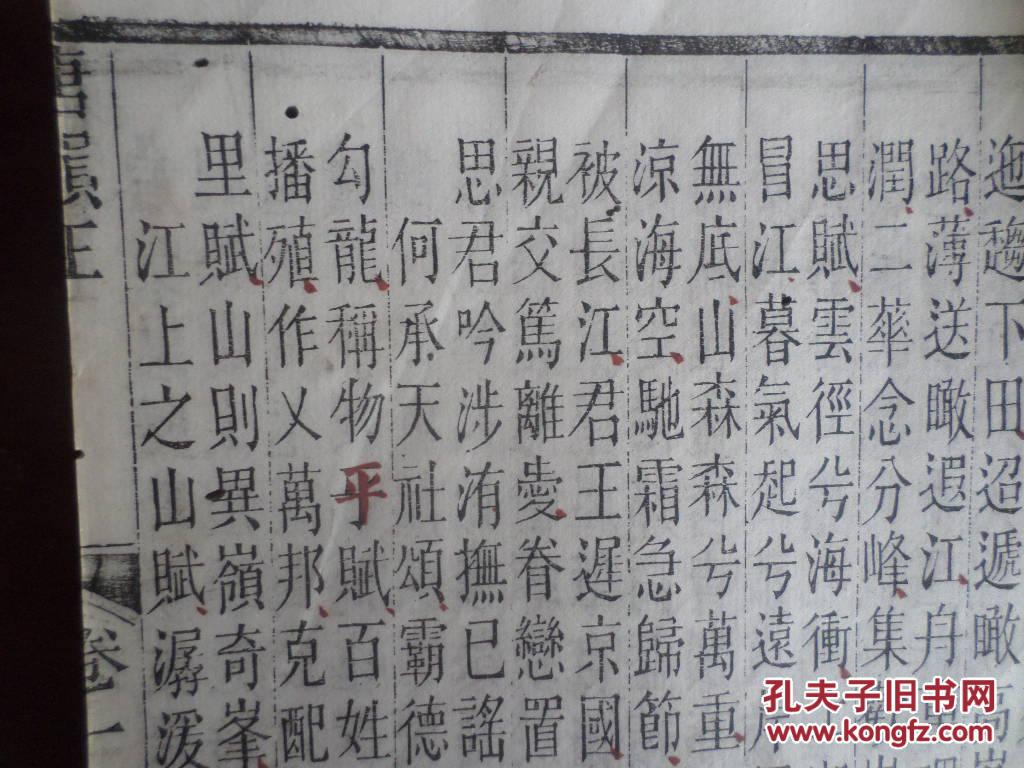 迤魏下田迢遞瞰高
路薄送瞰遐江舟
潤二華念分峰集
思賦雲徑兮海衝
冒江暮氣起兮遠岸
無底山森森兮萬重
涼海空馳霜急歸節
被長江君王遲京國
親交篤離愛眷戀置
思君吟涉洧撫已謠
何承天社頌霸德
勾龍稱物平賦百姓
播殖作乂萬邦克配
里賦山則異嶺奇峯
江上之山賦潺湲
卷一
孔夫子旧书网
www.kongfz.com